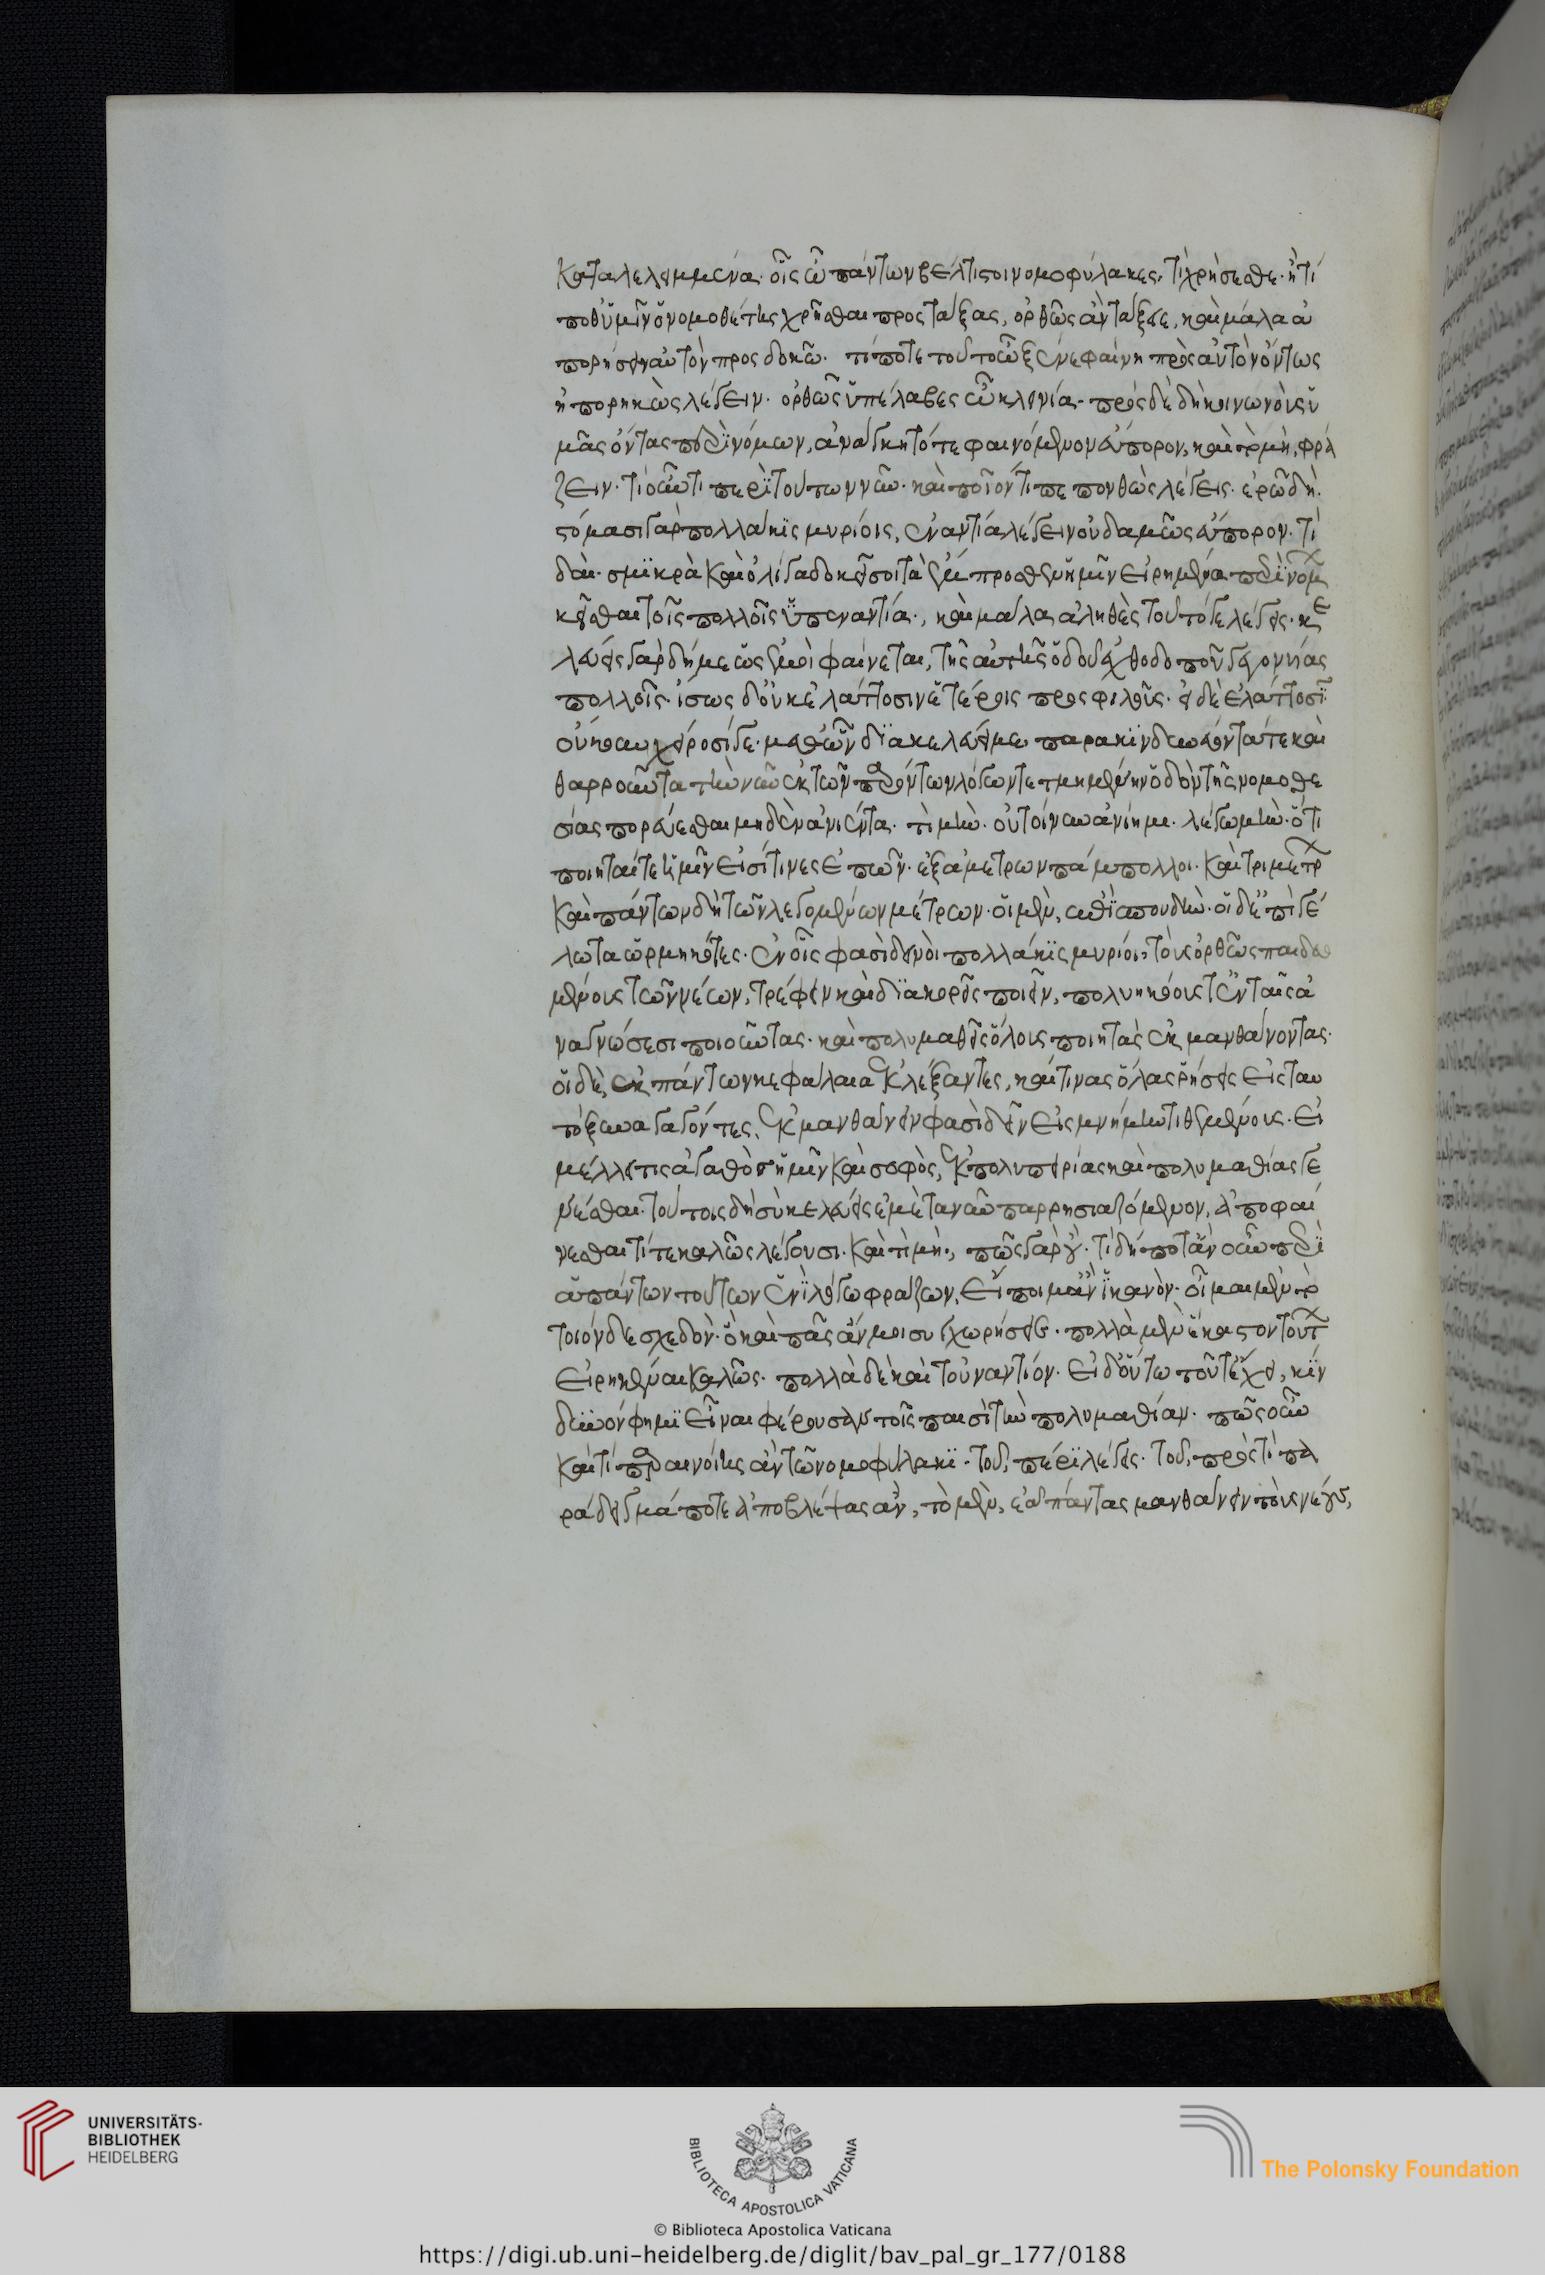 καταλελειμμένα· οἷς ὦ πάντων βέλτιστοι νομοφύλακες, τί χρήσεσθε· ἢ τί
ποθ' ὑμῖν ὁ νομοθέτης χρῆσθαι προστάξας, ὀρθῶς ἂν τάξειε, καὶ μάλα ἀ
πορήσειν αὐτὸν προσδοκῶ· τί ποτε τοῦτο ὦ ξένε φαίνη πρὸς αὐτὸν ὄντως
ἠπορηκὼς λέγειν· ὀρθῶς ὑπέλαβες ὦ κλεινία· πρὸς δὲ δὴ κοινωνοὺς ὑ
μᾶς ὄντας περὶ νόμων, ἀνάγκη τό τε φαινόμενον εὔπορον, καὶ τὸ μὴ, φρά
ζειν· τί οὖν τί περὶ τούτων νῦν· καὶ ποῖόν τι πεπονθὼς λέγεις· ἐρῶ δή·
στόμασι γὰρ πολλάκις μυρίοις, ἐναντία λέγειν οὐδαμῶς εὔπορον· τί
δαί· σμικρὰ καὶ ὀλίγα δοκεῖ σοι τὰ ἔμπροσθεν ἡμῖν εἰρημένα περὶ νόμων
κεῖσθαι τοῖς πολλοῖς ὑπεναντία·, καὶ μάλα ἀληθὲς τοῦτό γε λέγεις· κε
λεύεις γὰρ δή με ὡς ἐμοὶ φαίνεται, τῆς αὐτῆς ὁδοῦ ἐχθοδοποῦ γεγονυίας
πολλοῖς· ἴσως δ' οὐκ ἐλάττοσιν ἑτέροις προσφιλοῦς· εἰ δὲ ἐλάττοσιν
οὔκουν χείροσί γε· μεθ' ὧν διακελεύει με παρακινδυνεύοντά τε καὶ
θαρροῦντα τὴν νῦν ἐκ τῶν παρόντων λόγων τετμημένην ὁδὸν τῆς νομοθε
σίας πορεύεσθαι μηδὲν ἀνιέντα· τί μήν· οὐ τοίνυν ἀνίημι· λέγω μὴν ὅτι
ποιηταί τε ἡμῖν εἰσί τινες ἐπῶν· ἑξαμέτρων πάμπολλοι· καὶ τριμέτρων
καὶ πάντων δὴ τῶν λεγομένων μέτρων· οἱ μὲν, ἐπὶ σπουδήν· οἱ δ' ἐπὶ γέ
λωτα ὡρμηκότες· ἐν οἷς φασὶ δεῖν οἱ πολλάκις μυρίοι, τοὺς ὀρθῶς παιδευο
μένους τῶν νέων, τρέφειν καὶ διακορεῖς ποιεῖν, πολυηκόους τ' ἐν ταῖς ἀ
ναγνώσεσι ποιοῦντας· καὶ πολυμαθεῖς ὅλους ποιητὰς ἐκμανθάνοντας·
οἱ δὲ, ἐκ πάντων κεφάλαια ἐκλέξαντες, καί τινας ὅλας ῥήσεις εἰς ταυ
τὸ ξυναγαγόντες, ἐκμανθάνειν φασὶ δεῖν εἰς μνήμην τιθεμένους· εἰ
μέλλει τις ἀγαθὸς ἡμῖν καὶ σοφὸς, ἐκ πολυπειρίας καὶ πολυμαθίας γε
νέσθαι· τούτοις δὴ σὺ κελεύεις ἐμὲ τανῦν παρρησιαζόμενον, ἀποφαί
νεσθαι τί τε καλῶς λέγουσι· καὶ τί μή·, πῶς γὰρ οὔ· τί δή ποτ' ἂν οὖν περὶ
ἁπάντων τούτων ἑνὶ λόγω φράζων, εἴποιμ' ἂν ἱκανὸν· οἶμαι μὲν τὸ
τοιόνδε σχεδὸν· ὃ καὶ πᾶς ἄν μοι συγχωρήσειε· πολλὰ μὲν ἕκαστον τούτων
εἰρηκέναι καλῶς· πολλὰ δὲ καὶ τοὐναντίον· εἰ δ' οὕτω τοῦτ' ἔχει, κίν
δυνόν φημι εἶναι φέρουσαν τοῖς παισὶ τὴν πολυμαθίαν· πῶς οὖν
καὶ τί παραινοίης ἂν τῶ νομοφύλακι· τοῦ, πέρι λέγεις· τοῦ, πρὸς τί πα
ράδειγμά ποτε ἀποβλέψας ἂν, τὸ μὲν, ἐᾶ πάντας μανθάνειν τοὺς νέους,
UNIVERSITÄTS-
BIBLIOTHEK
HEIDELBERG
BIBLIOTECA APOSTOLICA VATICANA
The Polonsky Foundation
© Biblioteca Apostolica Vaticana
https://digi.ub.uni-heidelberg.de/diglit/bav_pal_gr_177/0188